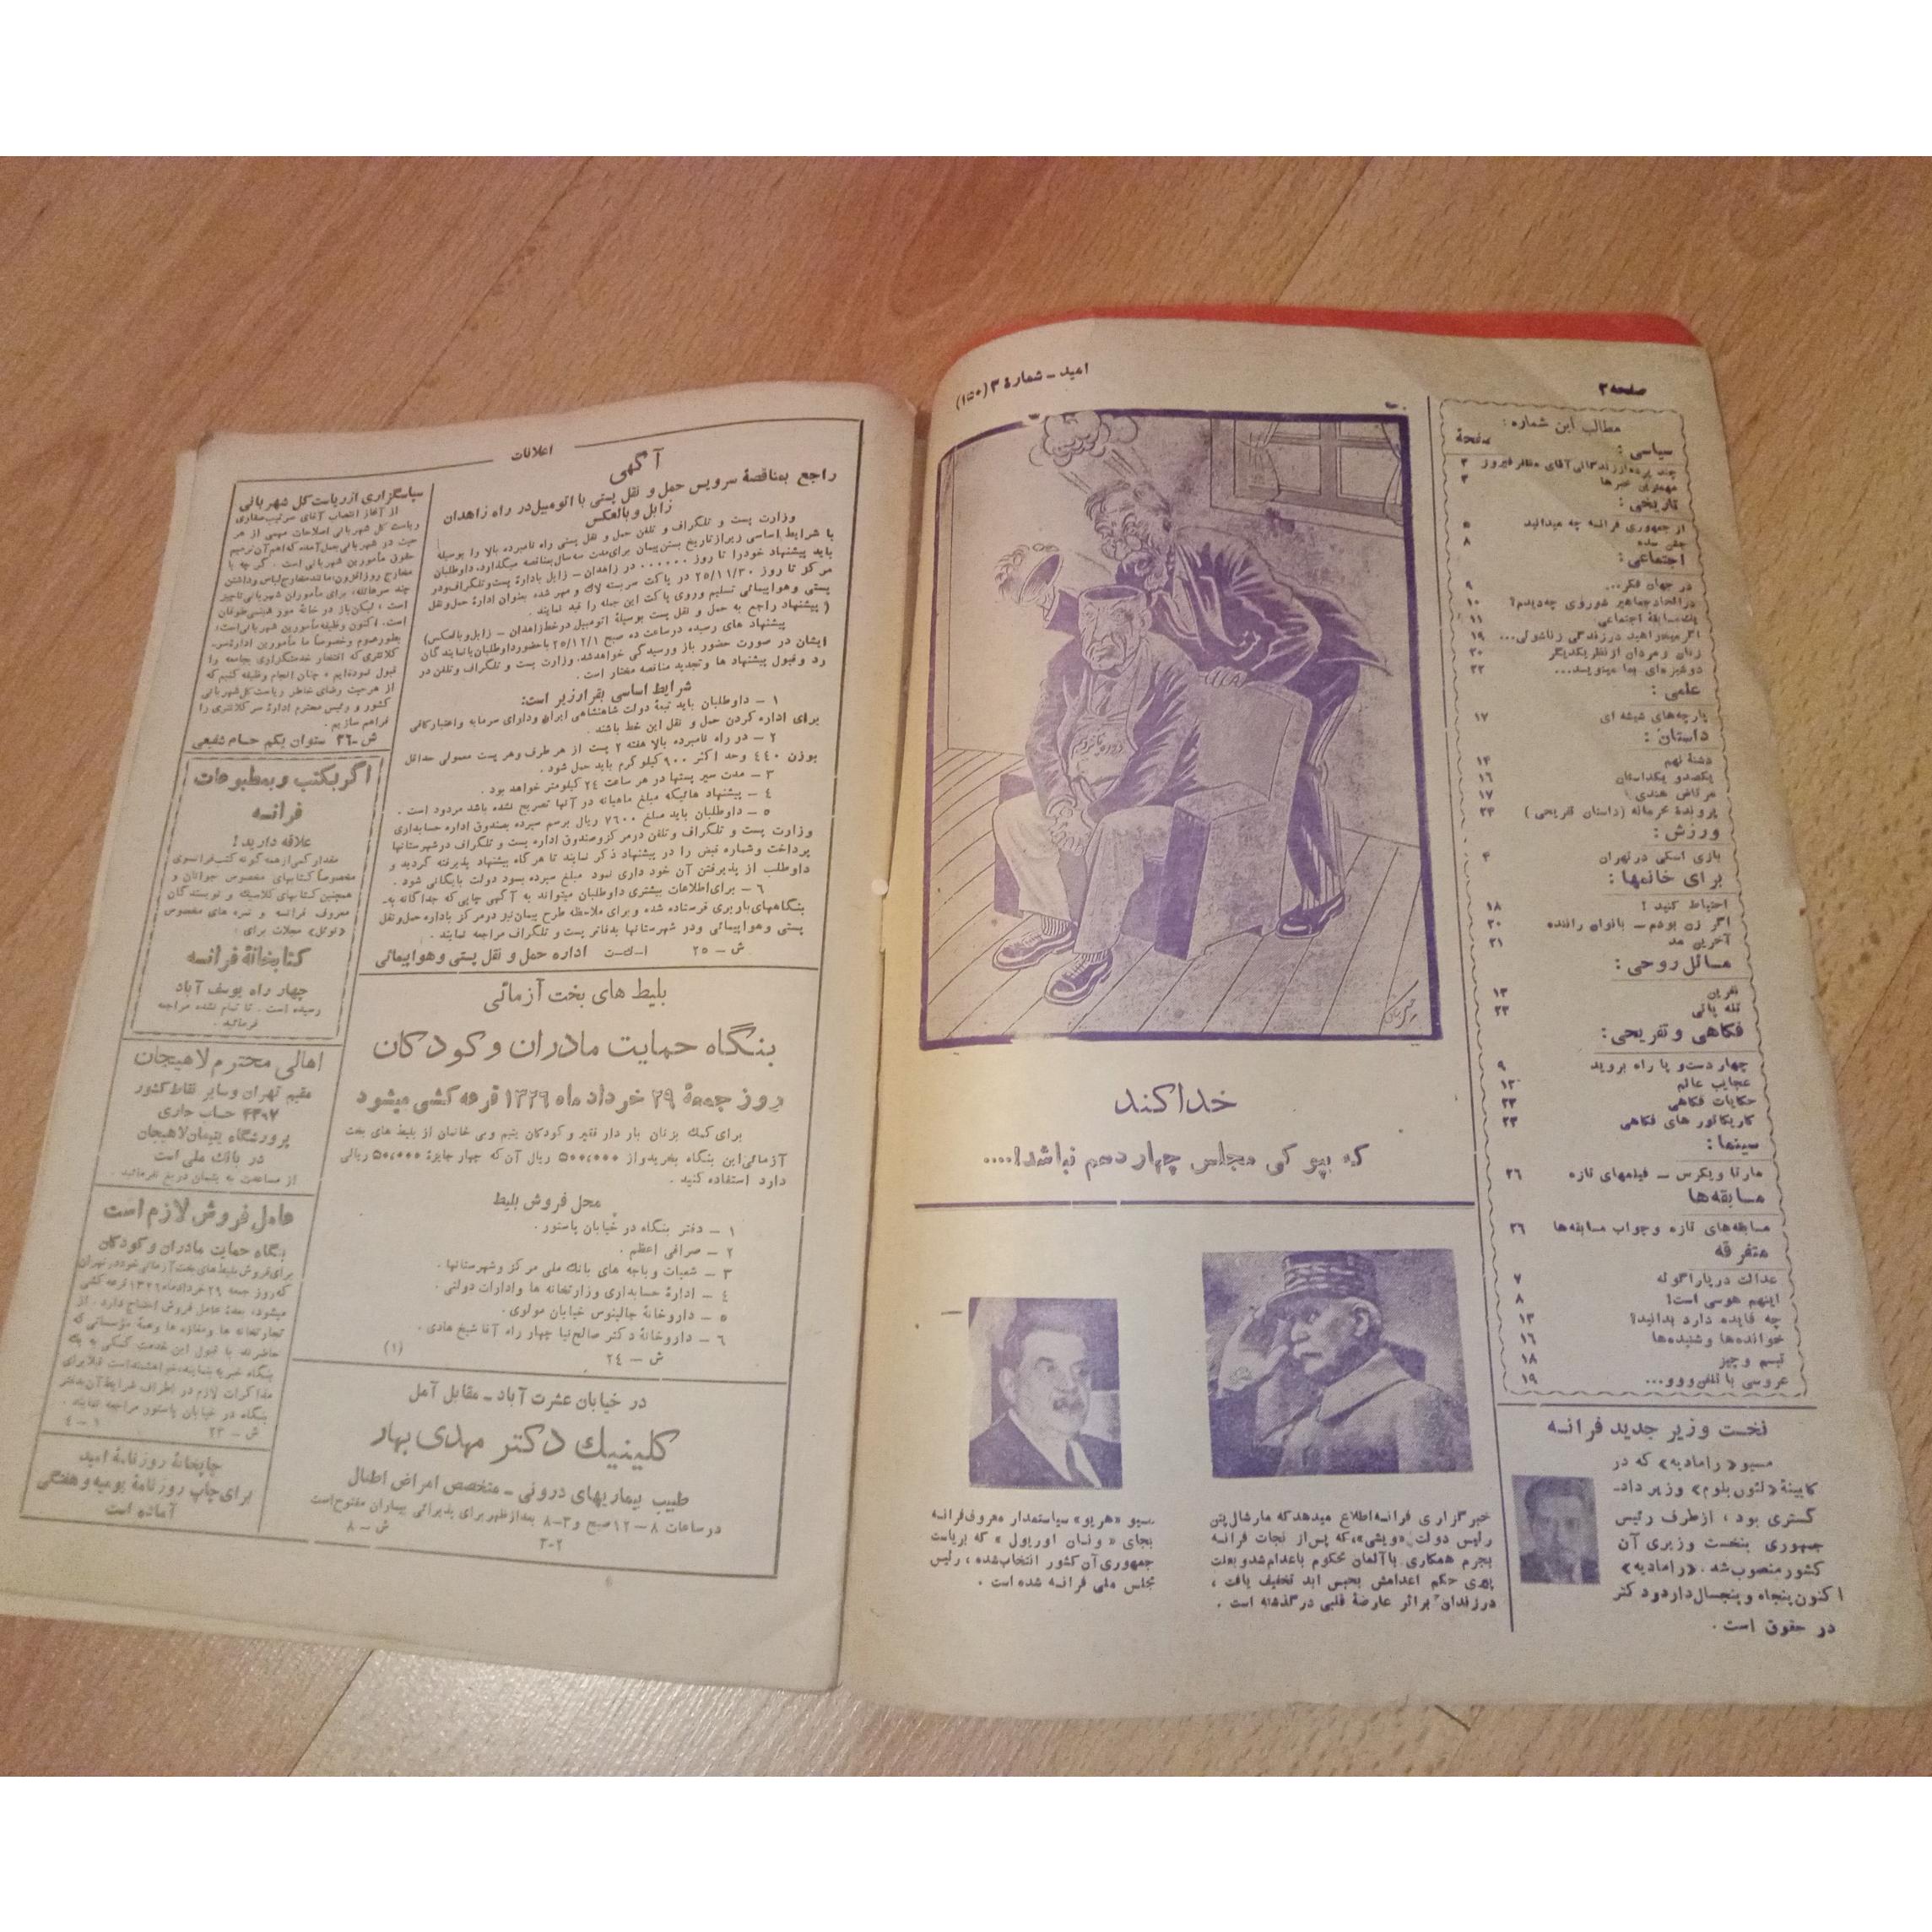 صفحه ۲
امید ـ شمارهٔ ۳ (۱۵۰)
مطالب این شماره :
صفحهٔ
سیاسی :
چند پرده از زندگانی آقای مظفر فیروز ۲
مهمترین خبرها ۳
تاریخی :
از جمهوری فرانسه چه میدانید ۵
جشن سده ۸
اجتماعی :
در جهان فکر... ۹
در اتحاد جماهیر شوروی چه دیدم؟ ۱۰
یك مسابقهٔ اجتماعی ۱۱
اگر میخواهید در زندگی زناشوئی... ۱۹
زنان و مردان از نظر یکدیگر ۲۰
دوشیزه‌ای بما مینویسد... ۲۲
علمی :
پارچه‌های شیشه ای ۱۷
داستان :
دشنهٔ نهم ۱۴
یکصدو یکداستان ۱۶
مرتاض هندی ۱۷
پروندهٔ محرمانه (داستان تفریحی) ۲۴
ورزش :
بازی اسکی در تهران ۴
برای خانمها :
احتیاط کنید ! ۱۸
اگر زن بودم ـ بانوان راننده ۲۰
آخرین مد ۲۱
مسائل روحی :
نفرین ۱۳
تله پاتی ۲۲
فکاهی و تفریحی :
چهار دست و پا راه بروید ۹
عجایب عالم ۱۲
حکایات فکاهی ۲۳
کاریکاتور های فکاهی ۲۳
سینما :
مارتا ویکرس ـ فیلمهای تازه ۲۶
مسابقه‌ها
مسابقه‌های تازه و جواب مسابقه‌ها ۲۶
متفرقه
عدالت در پاراگوئه ۷
اینهم هوسی است! ۸
چه فایده دارد بدانید؟ ۱۳
خوانده‌ها و شنیده‌ها ۱۶
تبسم و چیز ۱۸
عروسی با تلفن ووو... ۱۹
نخست وزیر جدید فرانسه
مسیو «رامادیه» که در
کابینهٔ «لئون بلوم» وزیر داد-
گستری بود ، از طرف رئیس
جمهوری بنخست وزیری آن
کشور منصوب شد . «رامادیه»
اکنون پنجاه و پنجسال دارد و دکتر
در حقوق است .
خدا کند
که بپو کی مجلس چهاردهم نباشد!....
خبرگزاری فرانسه اطلاع میدهد که مارشال پتن
رئیس دولت «ویشی»، که پس از نجات فرانسه
بجرم همکاری با آلمان محکوم باعدام شد و بعلت
پیری حکم اعدامش بحبس ابد تخفیف یافت ،
در زندان بر اثر عارضهٔ قلبی در گذشته است .
مسیو «هریو» سیاستمدار معروف فرانسه
بجای « ونسان اوریول » که بریاست
جمهوری آن کشور انتخاب شده ، رئیس
مجلس ملی فرانسه شده است .
اعلانات
آگهی
راجع بمناقصهٔ سرویس حمل و نقل پستی با اتومبیل در راه زاهدان
زابل و بالعکس
وزارت پست و تلگراف و تلفن حمل و نقل پستی راه نامبرده بالا را بوسیله
با شرایط اساسی زیر از تاریخ بستن پیمان برای مدت سه سال بمناقصه میگذارد. داوطلبان
باید پیشنهاد خود را تا روز ۰۰۰۰۰۰ در زاهدان ـ زابل بادارهٔ پست و تلگراف و در
مرکز تا روز ۲۵/۱۱/۳۰ در پاکت سربسته لاك و مهر شده بعنوان ادارهٔ حمل و نقل
پستی و هواپیمائی تسلیم و روی پاکت این جمله را قید نمایند .
( پیشنهاد راجع به حمل و نقل پست بوسیلهٔ اتومبیل در خط زاهدان ـ زابل و بالعکس)
پیشنهاد های رسیده در ساعت ده صبح ۲۵/۱۲/۱ با حضور داوطلبان یا نمایندگان
ایشان در صورت حضور باز و رسیدگی خواهد شد. وزارت پست و تلگراف و تلفن در
رد و قبول پیشنهاد ها و تجدید مناقصه مختار است .
شرایط اساسی بقرار زیر است:
۱ ـ داوطلبان باید تبعهٔ دولت شاهنشاهی ایران و دارای سرمایه و اعتبار کافی
برای اداره کردن حمل و نقل این خط باشند .
۲ ـ در راه نامبرده بالا هفته ۲ پست از هر طرف و هر پست معمولی حداقل
بوزن ۴۴۰ وحد اکثر ۹۰۰ کیلو گرم باید حمل شود .
۳ ـ مدت سیر پستها در هر ساعت ۲۴ کیلومتر خواهد بود .
۴ ـ پیشنهاد هائیکه مبلغ ماهیانه در آنها تصریح نشده باشد مردود است .
۵ ـ داوطلبان باید مبلغ ۷۶۰۰ ریال برسم سپرده بصندوق اداره حسابداری
وزارت پست و تلگراف و تلفن در مرکز و صندوق اداره پست و تلگراف در شهرستانها
پرداخت و شماره قبض را در پیشنهاد ذکر نمایند تا هر گاه پیشنهاد پذیرفته گردید و
داوطلب از پذیرفتن آن خود داری نمود مبلغ سپرده بسود دولت بایگانی شود .
۶ ـ برای اطلاعات بیشتری داوطلبان میتواند به آگهی چاپی که جداگانه به-
بنگاههای باربری فرستاده شده و برای ملاحظه طرح پیمان نیز در مرکز باداره حمل و نقل
پستی و هواپیمائی و در شهرستانها بدفاتر پست و تلگراف مراجعه نمایند .
ش ـ ۲۵ ا-ك-ت اداره حمل و نقل پستی و هواپیمائی
بلیط های بخت آزمائی
بنگاه حمایت مادران و کودکان
روز جمعهٔ ۲۹ خرداد ماه ۱۳۲۶ قرعه کشی میشود
برای کمك بزنان بار دار فقیر و کودکان یتیم و بی خانمان از بلیط های بخت
آزمائی این بنگاه بخرید و از ۵۰۰٬۰۰۰ ریال آن که چهار جایزهٔ ۵۰٬۰۰۰ ریالی
دارد استفاده کنید .
محل فروش بلیط
۱ ـ دفتر بنگاه در خیابان پاستور .
۲ ـ صرافی اعظم .
۳ ـ شعبات و باجه های بانك ملی مرکز و شهرستانها .
۴ ـ ادارهٔ حسابداری وزارتخانه ها و ادارات دولتی .
۵ ـ داروخانهٔ جالینوس خیابان مولوی .
۶ ـ داروخانهٔ دکتر صالح‌نیا چهار راه آقا شیخ هادی .
ش ـ ۲۴ (۱)
در خیابان عشرت آباد ـ مقابل آمل
کلینیك دکتر مهدی بهار
طبیب بیماریهای درونی ـ متخصص امراض اطفال
در ساعات ۸ ـ ۱۲ صبح و ۳-۸ بعد از ظهر برای پذیرائی بیماران مفتوح است
۳-۲ ش ـ ۸
سپاسگزاری از ریاست کل شهربانی
از آغاز انتصاب آقای سرتیپ صفاری
ریاست کل شهربانی اصلاحات مهمی از هر
حیث در شهربانی بعمل آمده که اهم آن ترمیم
حقوق مأمورین شهربانی است . گر چه با
مخارج روز افزون، مانند مخارج لباس و داشتن
چند سر عائله، برای مأموران شهربانی ناچیز
است ، لیکن باز در خانهٔ مور شبنمی طوفان
است. اکنون وظیفه مأمورین شهربانی است،
بطور عموم و خصوصاً ما مأمورین اداره سر-
کلانتری که افتخار خدمتگزاری جامعه را
قبول نموده‌ایم ، چنان انجام وظیفه کنیم که
از هر حیث رضای خاطر ریاست کل شهربانی
کشور و رئیس محترم ادارهٔ سر کلانتری را
فراهم سازیم .
ش -۲۶ ستوان یکم حسام شفیعی
اگر بکتب و بمطبوعات
فرانسه
علاقه دارید !
مقدار کمی از همه گونه کتب فرانسوی
مخصوصاً کتابهای مخصوص جوانان و
همچنین کتابهای کلاسیك و نویسندگان
معروف فرانسه و نمره های مخصوص
«نوئل» مجلات برای :
کتابخانهٔ فرانسه
چهار راه یوسف آباد
رسیده است . تا تمام نشده مراجعه
فرمائید .
اهالی محترم لاهیجان
مقیم تهران و سایر نقاط کشور
۴۴۰۷ حساب جاری
پرورشگاه یتیمان لاهیجان
در بانك ملی است
از مساعدت به یتیمان دریغ نفرمائید .
عامل فروش لازم است
بنگاه حمایت مادران و کودکان
برای فروش بلیط های بخت آزمائی خود در تهران
که روز جمعه ۲۹ خرداد ماه ۱۳۲۶ قرعه کشی
میشود، بعدهٔ عامل فروش احتیاج دارد . از
تجارتخانه ها و مغازه ها و همهٔ مؤسساتی که
حاضرند با قبول این خدمت کمکی به یك
بنگاه خیریه بنمایند، خواهشمند است قبلا برای
مذاکرات لازم در اطراف شرایط آن بدفتر
بنگاه در خیابان پاستور مراجعه نمایند .
ش ـ ۲۳ ۱-۴
چاپخانهٔ روزنامهٔ امید
برای چاپ روزنامهٔ یومیه و هفتگی
آماده است